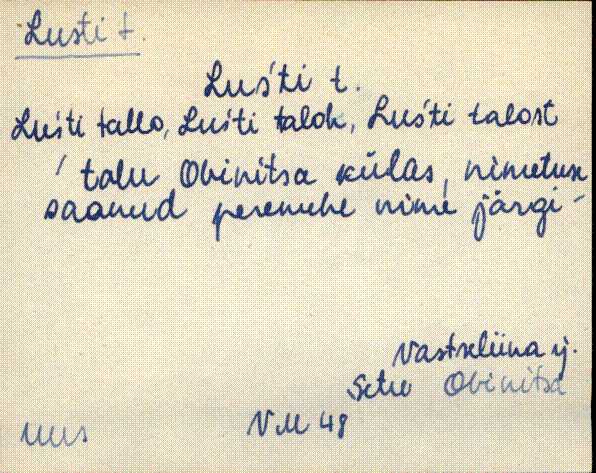 Lusti t.
Luśti t.
Luśti tallo, Luśti talok, Luśti talost
/ talu Obinitsa külas, nimetuse
saanud peremehe nime järgi -
Vastseliina rj.
Setu Obinitsa
VM 48
uus